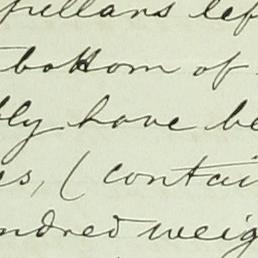 pillars lef
bottom of
bly have be
s, ( contai
ndred weig